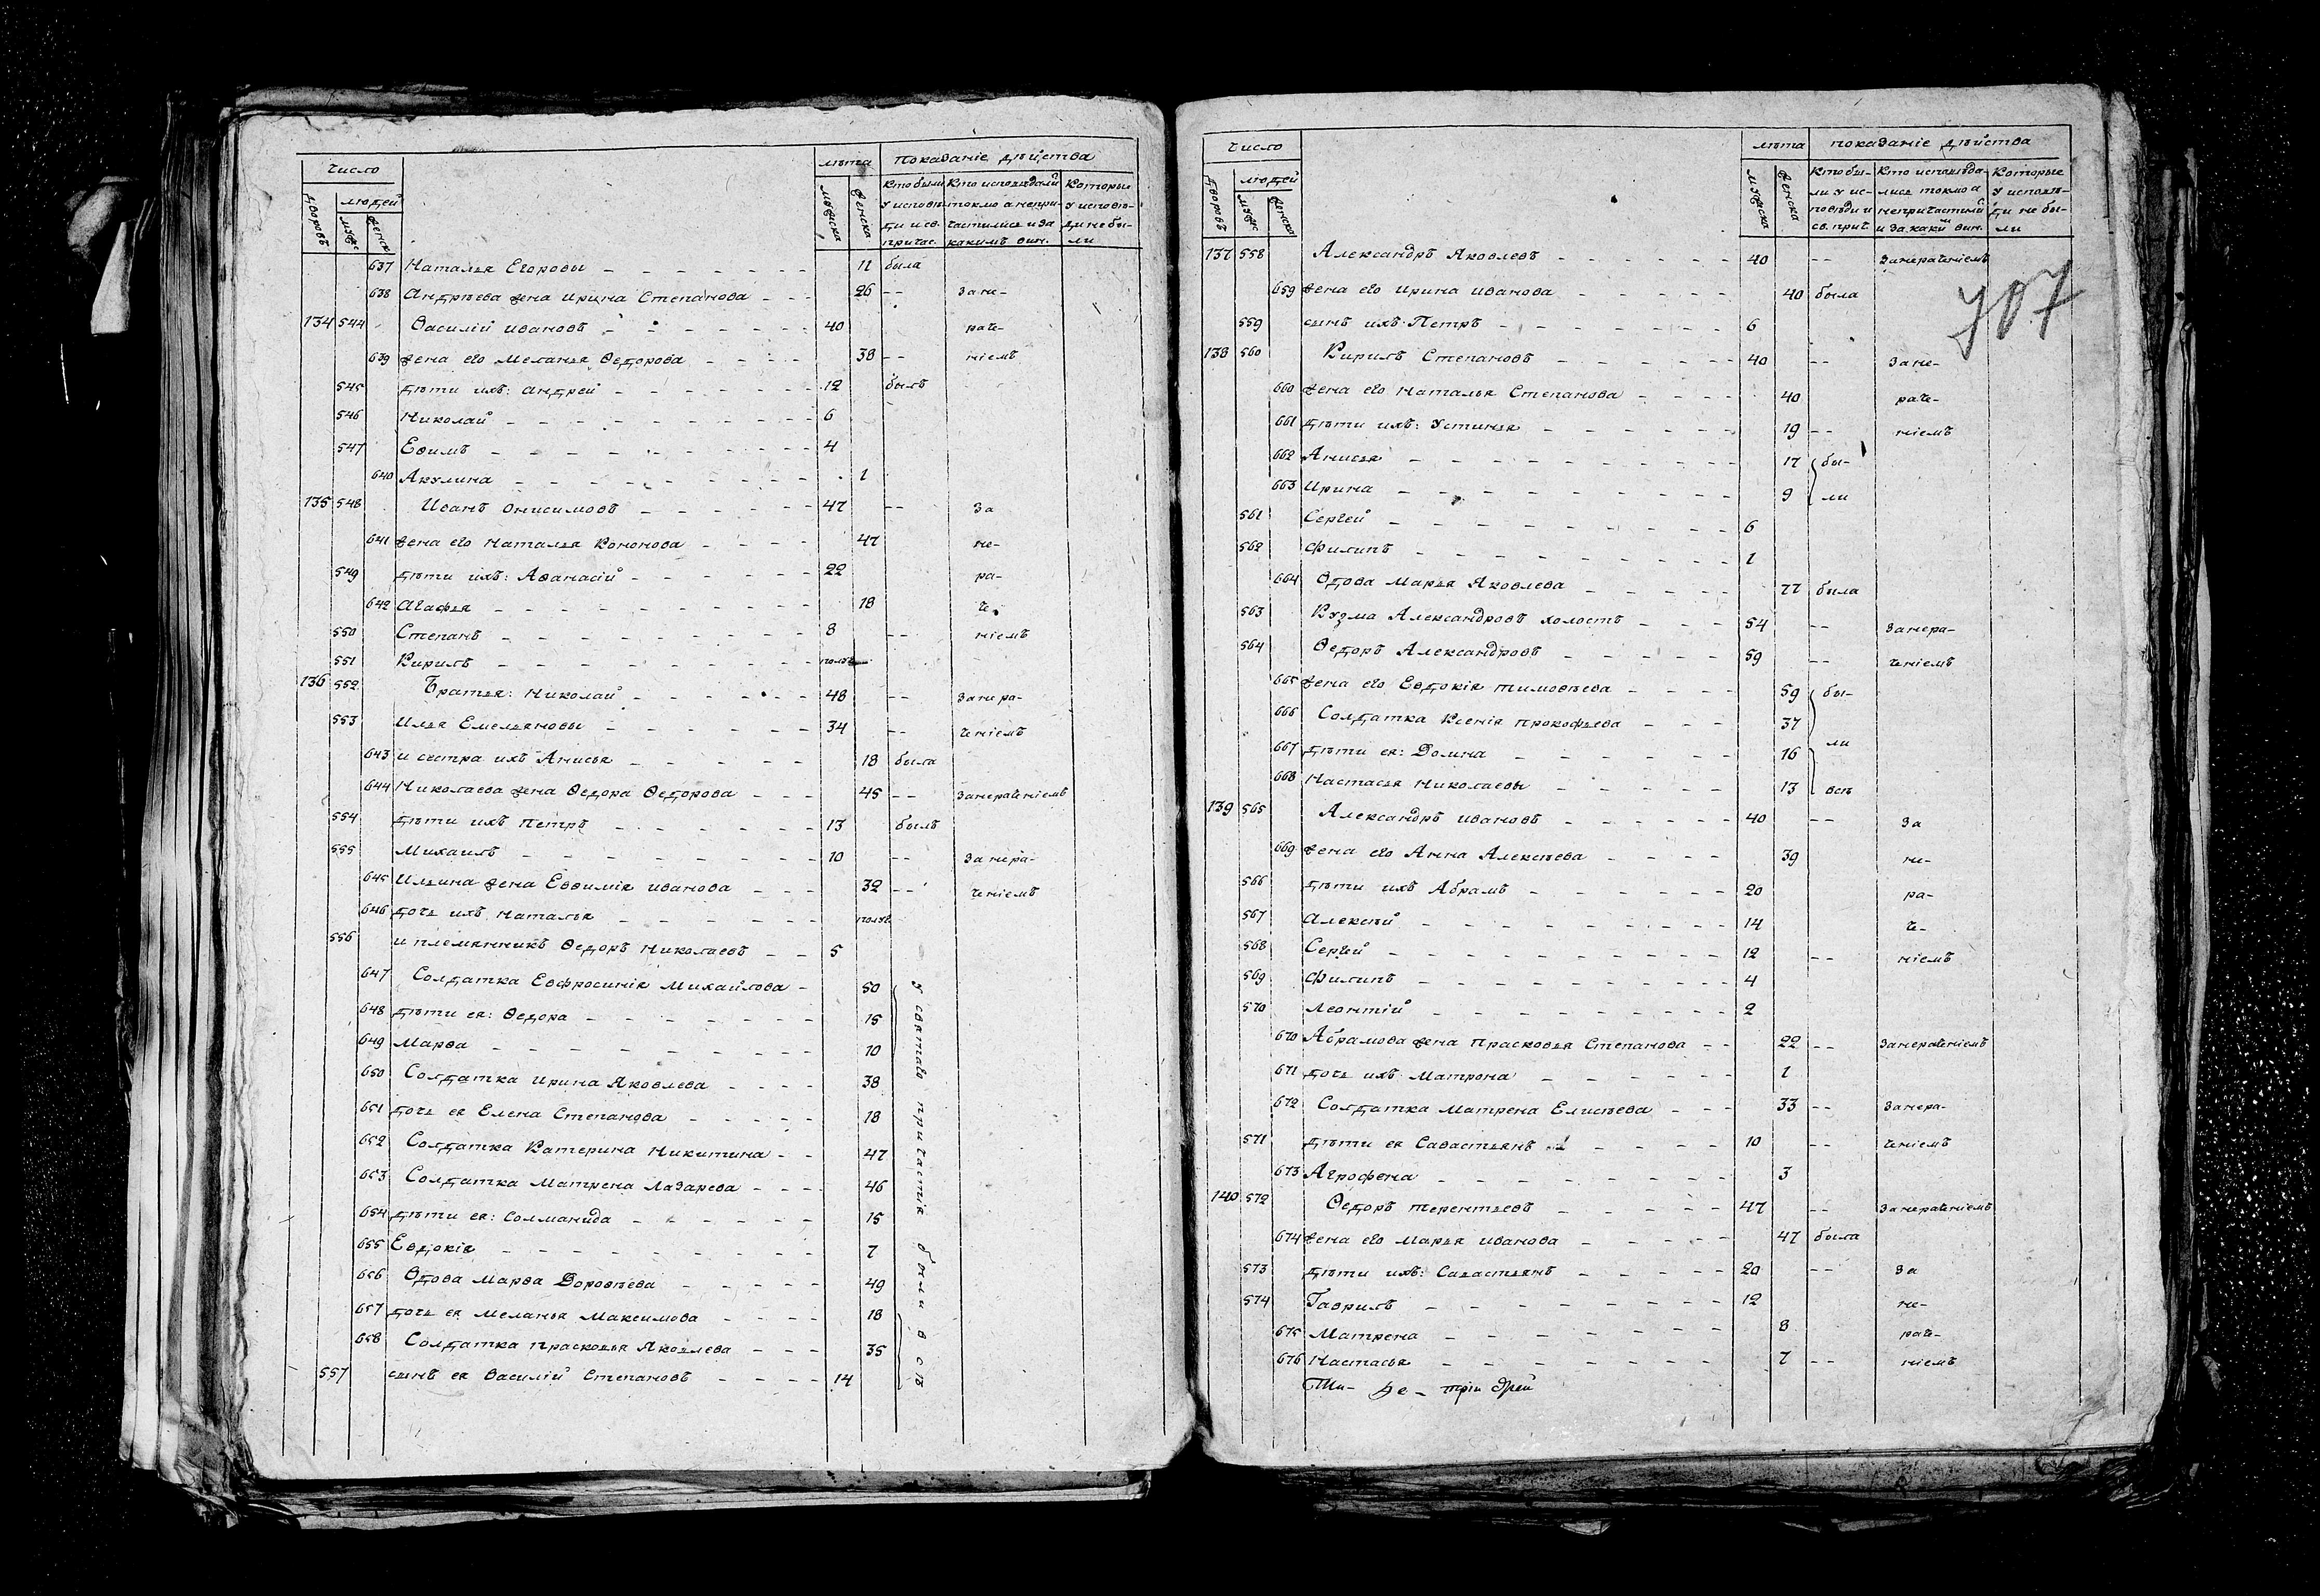 число лѣта показаніе дѣйства
дворовъ людей мужска женска кто были кто исповѣдали которые
муж: женск у исповѣ- токмо а непри- у исповѣ-
ди и св. частились и за ди не бы-
причас. какимъ вин. ли
637 Наталья Егоровы 11 была
638 Андрѣева жена Ирина Степанова 26 -- зане-
134 544 Василій Ивановъ 40 раче-
639 жена его Меланья Ѳедорова 38 -- ніемъ
545 дѣти ихъ: Андрей 12 былъ
546 Николай 6
547 Еѳимъ 4
640 Акулина 1
135 548 Иванъ Онисимовъ 47 -- за
641 жена его Наталья Кононова 47 не-
549 дѣти ихъ: Аѳанасій 22 ра-
642 Агафья 18 че-
550 Степанъ 8 -- ніемъ
551 Кирилъ полъ
136 552 Братья: Николай 48 -- занера-
553 Илья Емельяновы 34 -- ченіемъ
643 и сестра ихъ Анисья 18 была
644 Николаева жена Ѳедора Ѳедорова 45 -- занераченіемъ
554 дѣти ихъ Петръ 13 былъ
555 Михаилъ 10 -- занера-
645 Ильина жена Евѳимія Иванова 32 -- ченіемъ
646 дочь ихъ Наталья полъ
556 и племянникъ Ѳедоръ Николаевъ 5
647 Солдатка Евфросинія Михайлова 50
648 дѣти ея: Ѳедора 15
649 Марѳа 10
650 Солдатка Ирина Яковлева 38
651 дочь ея Елена Степанова 18
652 Солдатка Катерина Никитина 47
653 Солдатка Матрена Лазарева 46
654 дѣти ея: Солманида 15
655 Евдокія 7
656 Вдова Марѳа Дороѳѣева 49
657 дочь ея Меланья Максимова 18
658 Солдатка Прасковья Яковлева 35
557 сынъ ея Василій Степановъ 14
у святаго причастія были всѣ
число лѣта показаніе дѣйства
дворовъ людей мужска женска кто бы- кто исповѣда- которые
муж: женск ли у ис- лись токмо а у исповѣ-
повѣди и непричастили ди не бы-
св. прич. и за каки вин. ли
707
137 558 Александръ Яковлевъ 40 -- занераченіемъ
659 жена его Ирина Иванова 40 была
559 сынъ ихъ Петръ 6
138 560 Кирилъ Степановъ 40 -- зане-
660 жена его Наталья Степанова 40 раче-
661 дѣти ихъ: Устинья 19 -- ніемъ
662 Анисья 17 бы-
663 Ирина 9 ли
561 Сергей 6
562 Филипъ 1
664 Вдова Марья Яковлева 77 была
563 Кузма Александровъ холостъ 54 -- занера-
564 Ѳедоръ Александровъ 59 -- ченіемъ
665 жена его Евдокія Тимоѳѣева 59 бы-
666 Солдатка Ксенія Прокофьева 37
ли
667 дѣти ея: Домна 16
668 Настасья Николаевы 13 всѣ
139 565 Александръ Ивановъ 40 -- за
669 жена его Анна Алексѣева 39 не-
566 дѣти ихъ Абрамъ 20 ра-
567 Алексѣй 14 че-
568 Сергей 12 -- ніемъ
569 Филипъ 4
570 Леонтій 2
670 Абрамова жена Прасковья Степанова 22 -- занераченіемъ
671 дочь ихъ Матрона 1
672 Солдатка Матрена Елисѣева 33 -- занера-
571 дѣти ея Савастьянъ 10 -- ченіемъ
673 Агрофена 3
140 572 Ѳедоръ Терентьевъ 47 -- занераченіемъ
674 жена его Марья Иванова 47 была
573 дѣти ихъ: Савастьянъ 20 -- за
574 Гаврилъ 12 не-
675 Матрена 8 раче-
676 Настасья 7 -- ніемъ